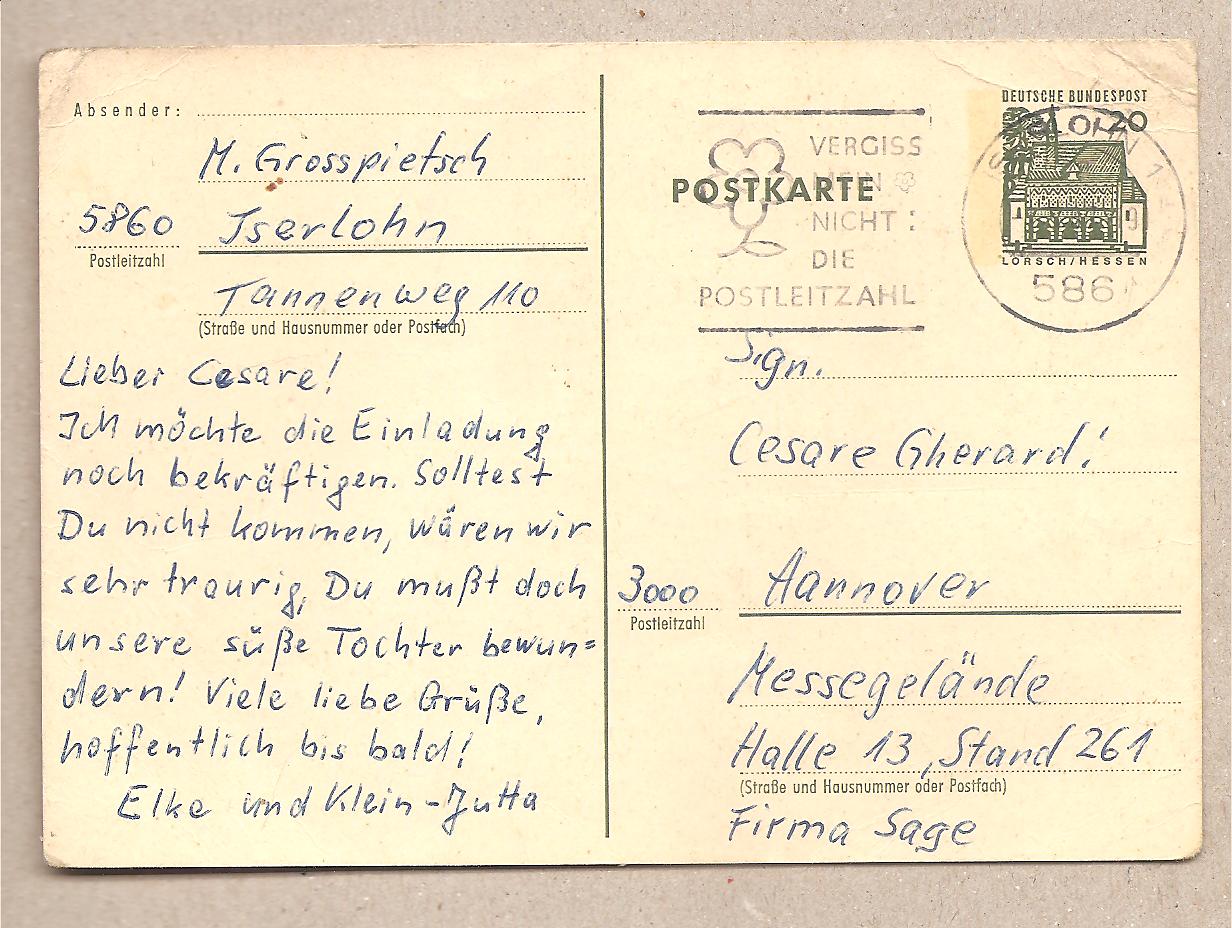 Absender:
M. Grosspietsch
5860 Iserlohn
Postleitzahl
Tannenweg 110
(Straße und Hausnummer oder Postfach)
Lieber Cesare!
Ich möchte die Einladung
noch bekräftigen. Solltest
Du nicht kommen, wären wir
sehr traurig, Du mußt doch
unsere süße Tochter bewun=
dern! Viele liebe Grüße,
hoffentlich bis bald!
Elke und Klein-Jutta
POSTKARTE
VERGISS
MEIN
NICHT:
DIE
POSTLEITZAHL
DEUTSCHE BUNDESPOST
20
LORSCH/HESSEN
ISERLOHN 1
586
Sign.
Cesare Gherardi
3000 Hannover
Postleitzahl
Messegelände
Halle 13, Stand 261
(Straße und Hausnummer oder Postfach)
Firma Sage